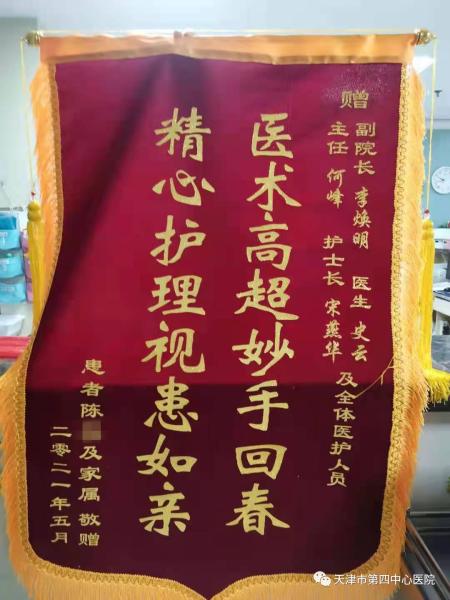 赠
副院长 李焕明 医生 史云
主任 何峰 护士长 宋燕华 及全体医护人员
医术高超妙手回春
精心护理视患如亲
患者陈 及家属 敬赠
二零二一年五月
天津市第四中心医院